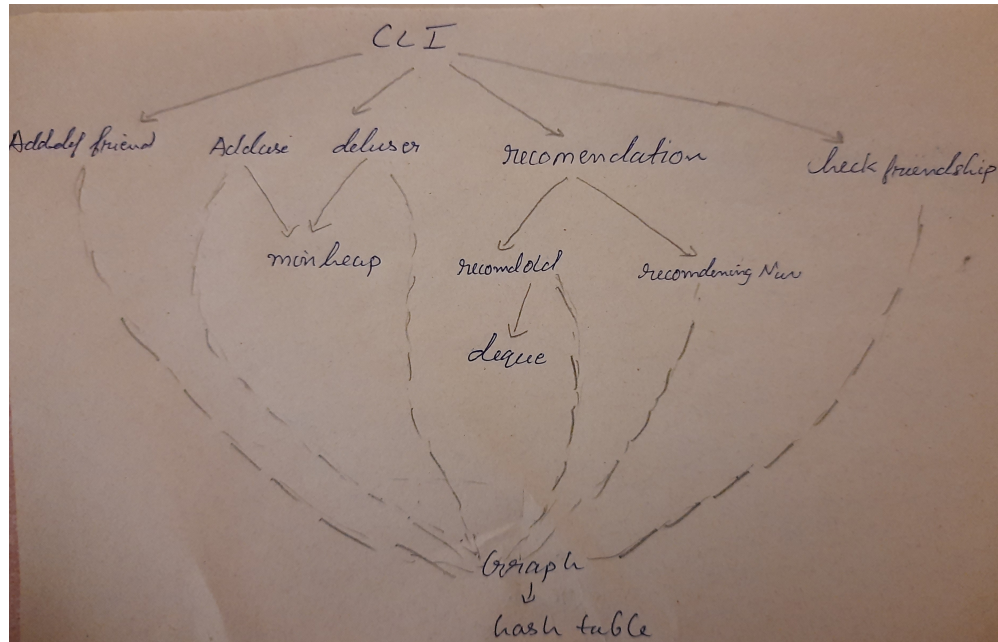 CLI
Adddel friend
Adduse deluser
recomendation
check friendship
minheap
recomdold
deque
Graph
hash table